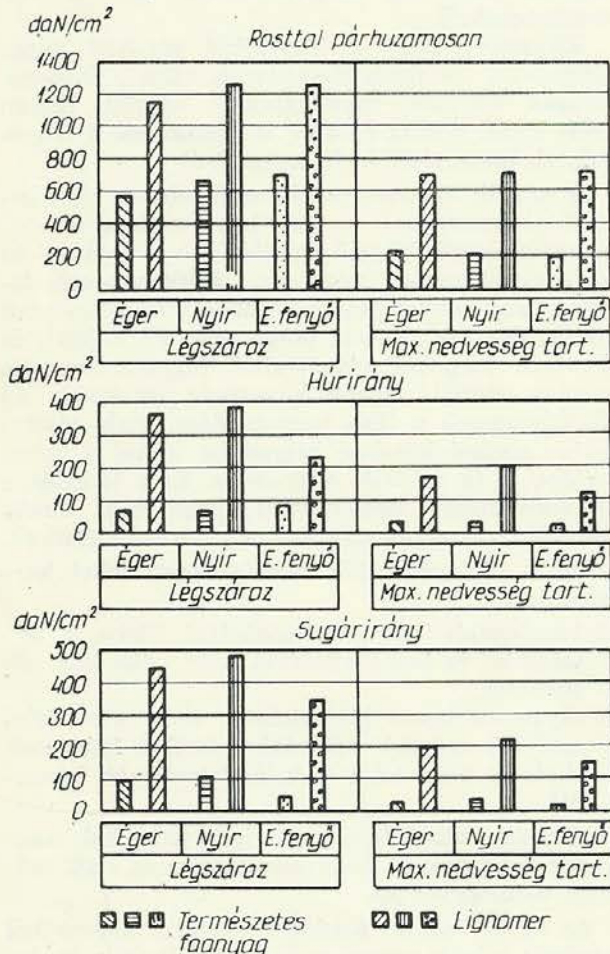 daN/cm²
Rosttal párhuzamosan
1400
1200
1000
800
600
400
200
0
Éger Nyír E.fenyő Éger Nyír E.fenyő
Légszáraz Max. nedvesség tart.
daN/cm²
Húrirány
400
300
200
100
0
Éger Nyír E.fenyő Éger Nyír E.fenyő
Légszáraz Max. nedvesség tart.
daN/cm²
Sugárirány
500
400
300
200
100
0
Éger Nyír E.fenyő Éger Nyír E.fenyő
Légszáraz Max. nedvesség tart.
Természetes faanyag
Lignomer